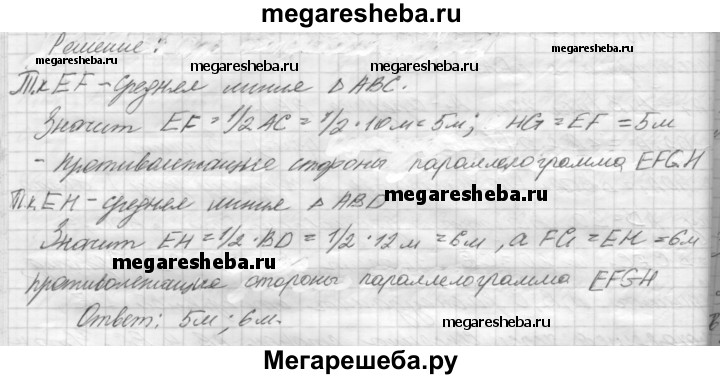 megaresheba.ru
Решение:
megaresheba.ru
megaresheba.ru
Т.к EF - средняя линия △ ABC.
Значит EF = 1/2 AC = 1/2 · 10 м = 5 м; HG = EF = 5 м
- противолежащие стороны параллелограмма EFGH
Т.к EH - средняя линия △ ABD
megaresheba.ru
Значит EH = 1/2 · BD = 1/2 · 12 м = 6 м, а FG = EH = 6 м
megaresheba.ru
противолежащие стороны параллелограмма EFGH
Ответ: 5 м; 6 м.
megaresheba.ru
Мегарешеба.ру